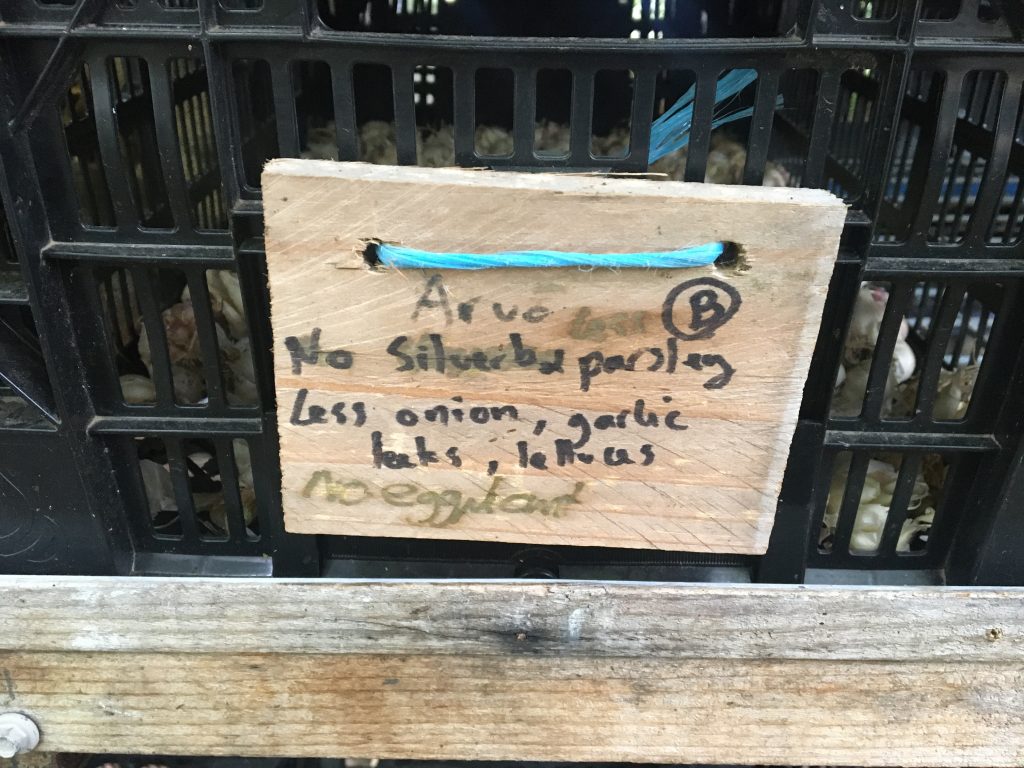 Arvo Less B
No Silverbe parsley
Less onion, garlic
leeks, lettuces
No eggplant